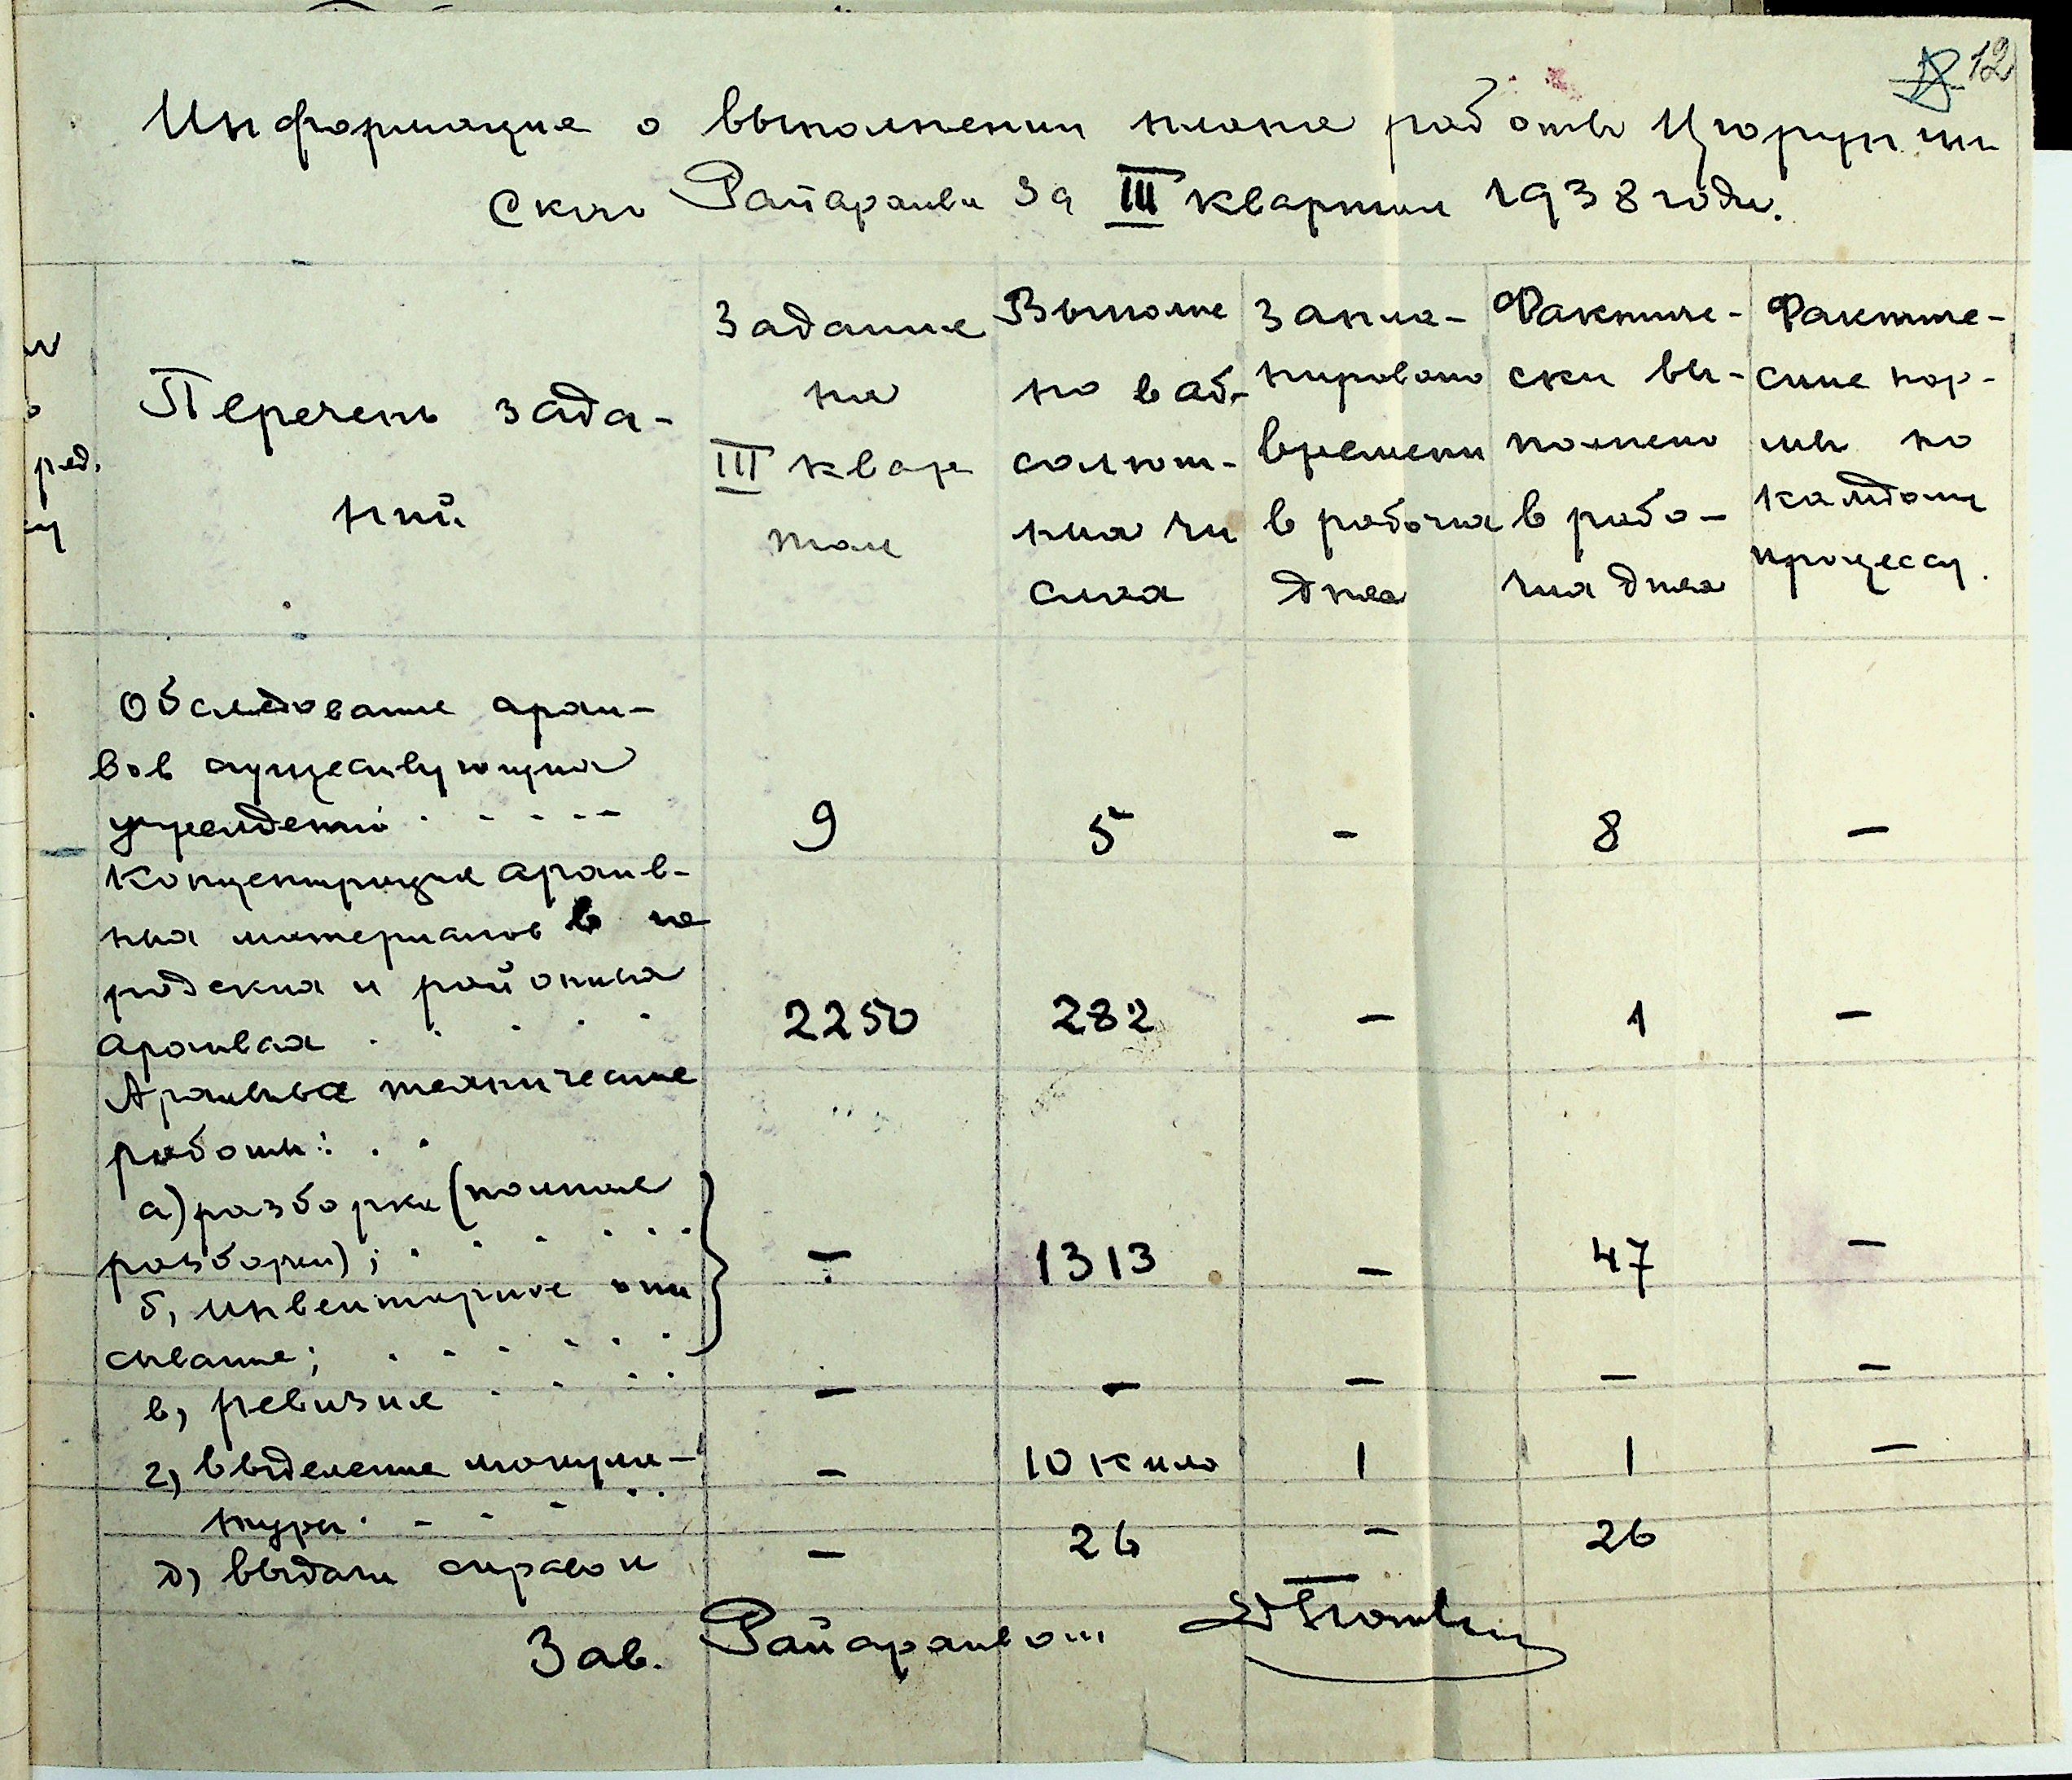 12
Информация о выполнении плана работы Цюрупин
ского Райархива за III квартал 1938 года.
Перечень зада-
ний
Задание
на
III квар
тал
Выполне
но в аб-
солют-
ных чи
слах
Запла-
нировано
времени
в рабочих
днях
Фактиче-
ски вы-
полнено
в рабо-
чих днях
Фактиче-
ские нор-
мы по
каждому
процессу.
Обследование архи-
вов существующих
учреждений . - - - - -
9 5 - 8 -
Концентрация архив-
ных материалов в го
родских и районных
архивах . . . . .
2250 282 - 1 -
Архивные технические
работы: . .
а) разборка (полная
разборка); . . . . . .
б, инвентарное опи
сывание; . . . . . .
- 1313 - 47 -
в, ревизия . . . .
- - - - -
г, выделение макула-
туры . - - - . .
- 10 кило 1 1 -
д, выдача справок
- 26 - 26
Зав. Райархивом
ред.